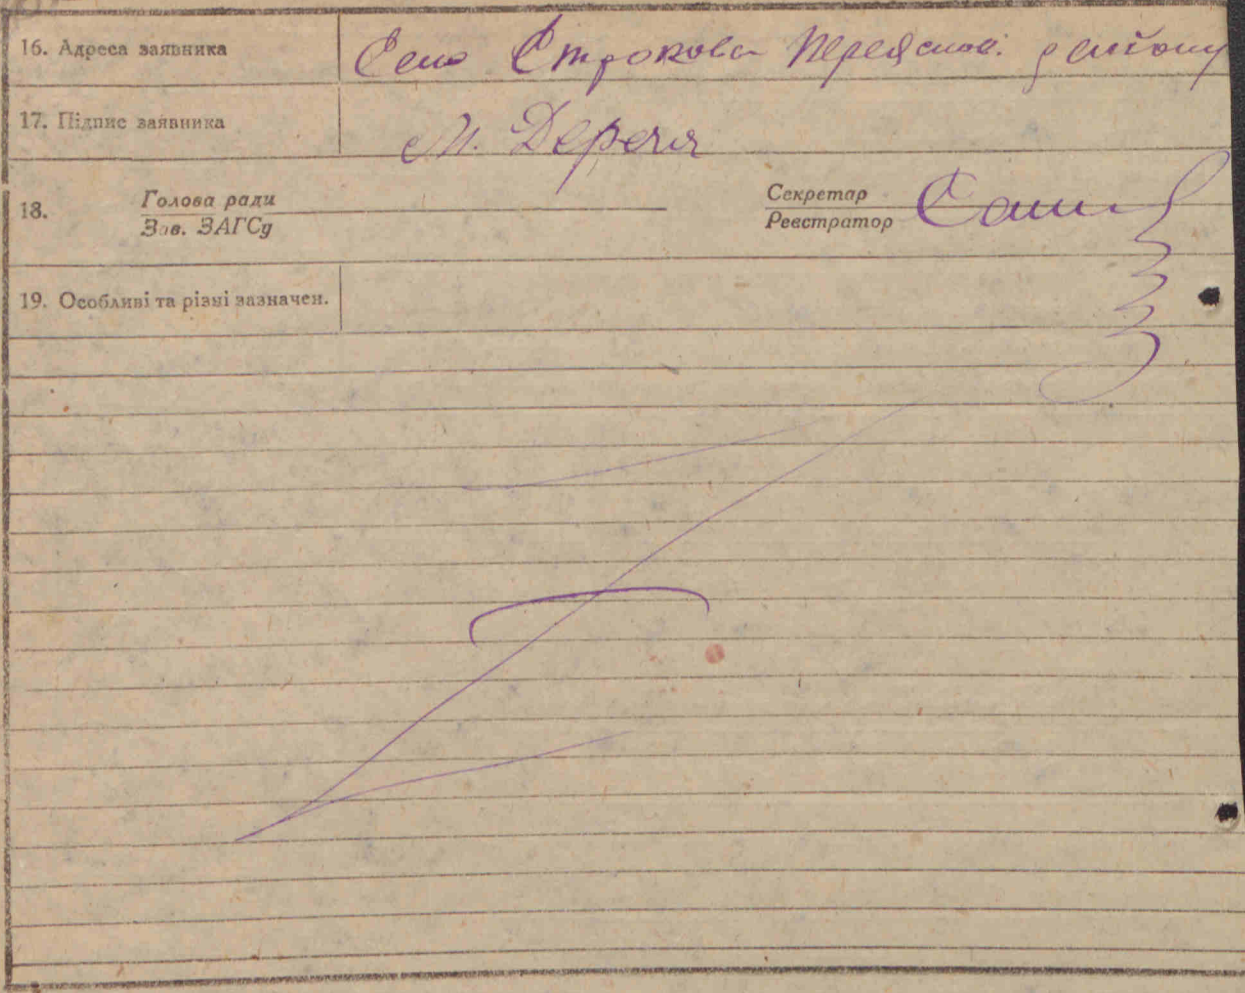 16. Адреса заявника Село Строкова Переяслов. району
17. Підпис заявника М. Дереча
18. Голова ради Секретар
Зав. ЗАГСу Реєстратор
19. Особливі та різні зазначен.